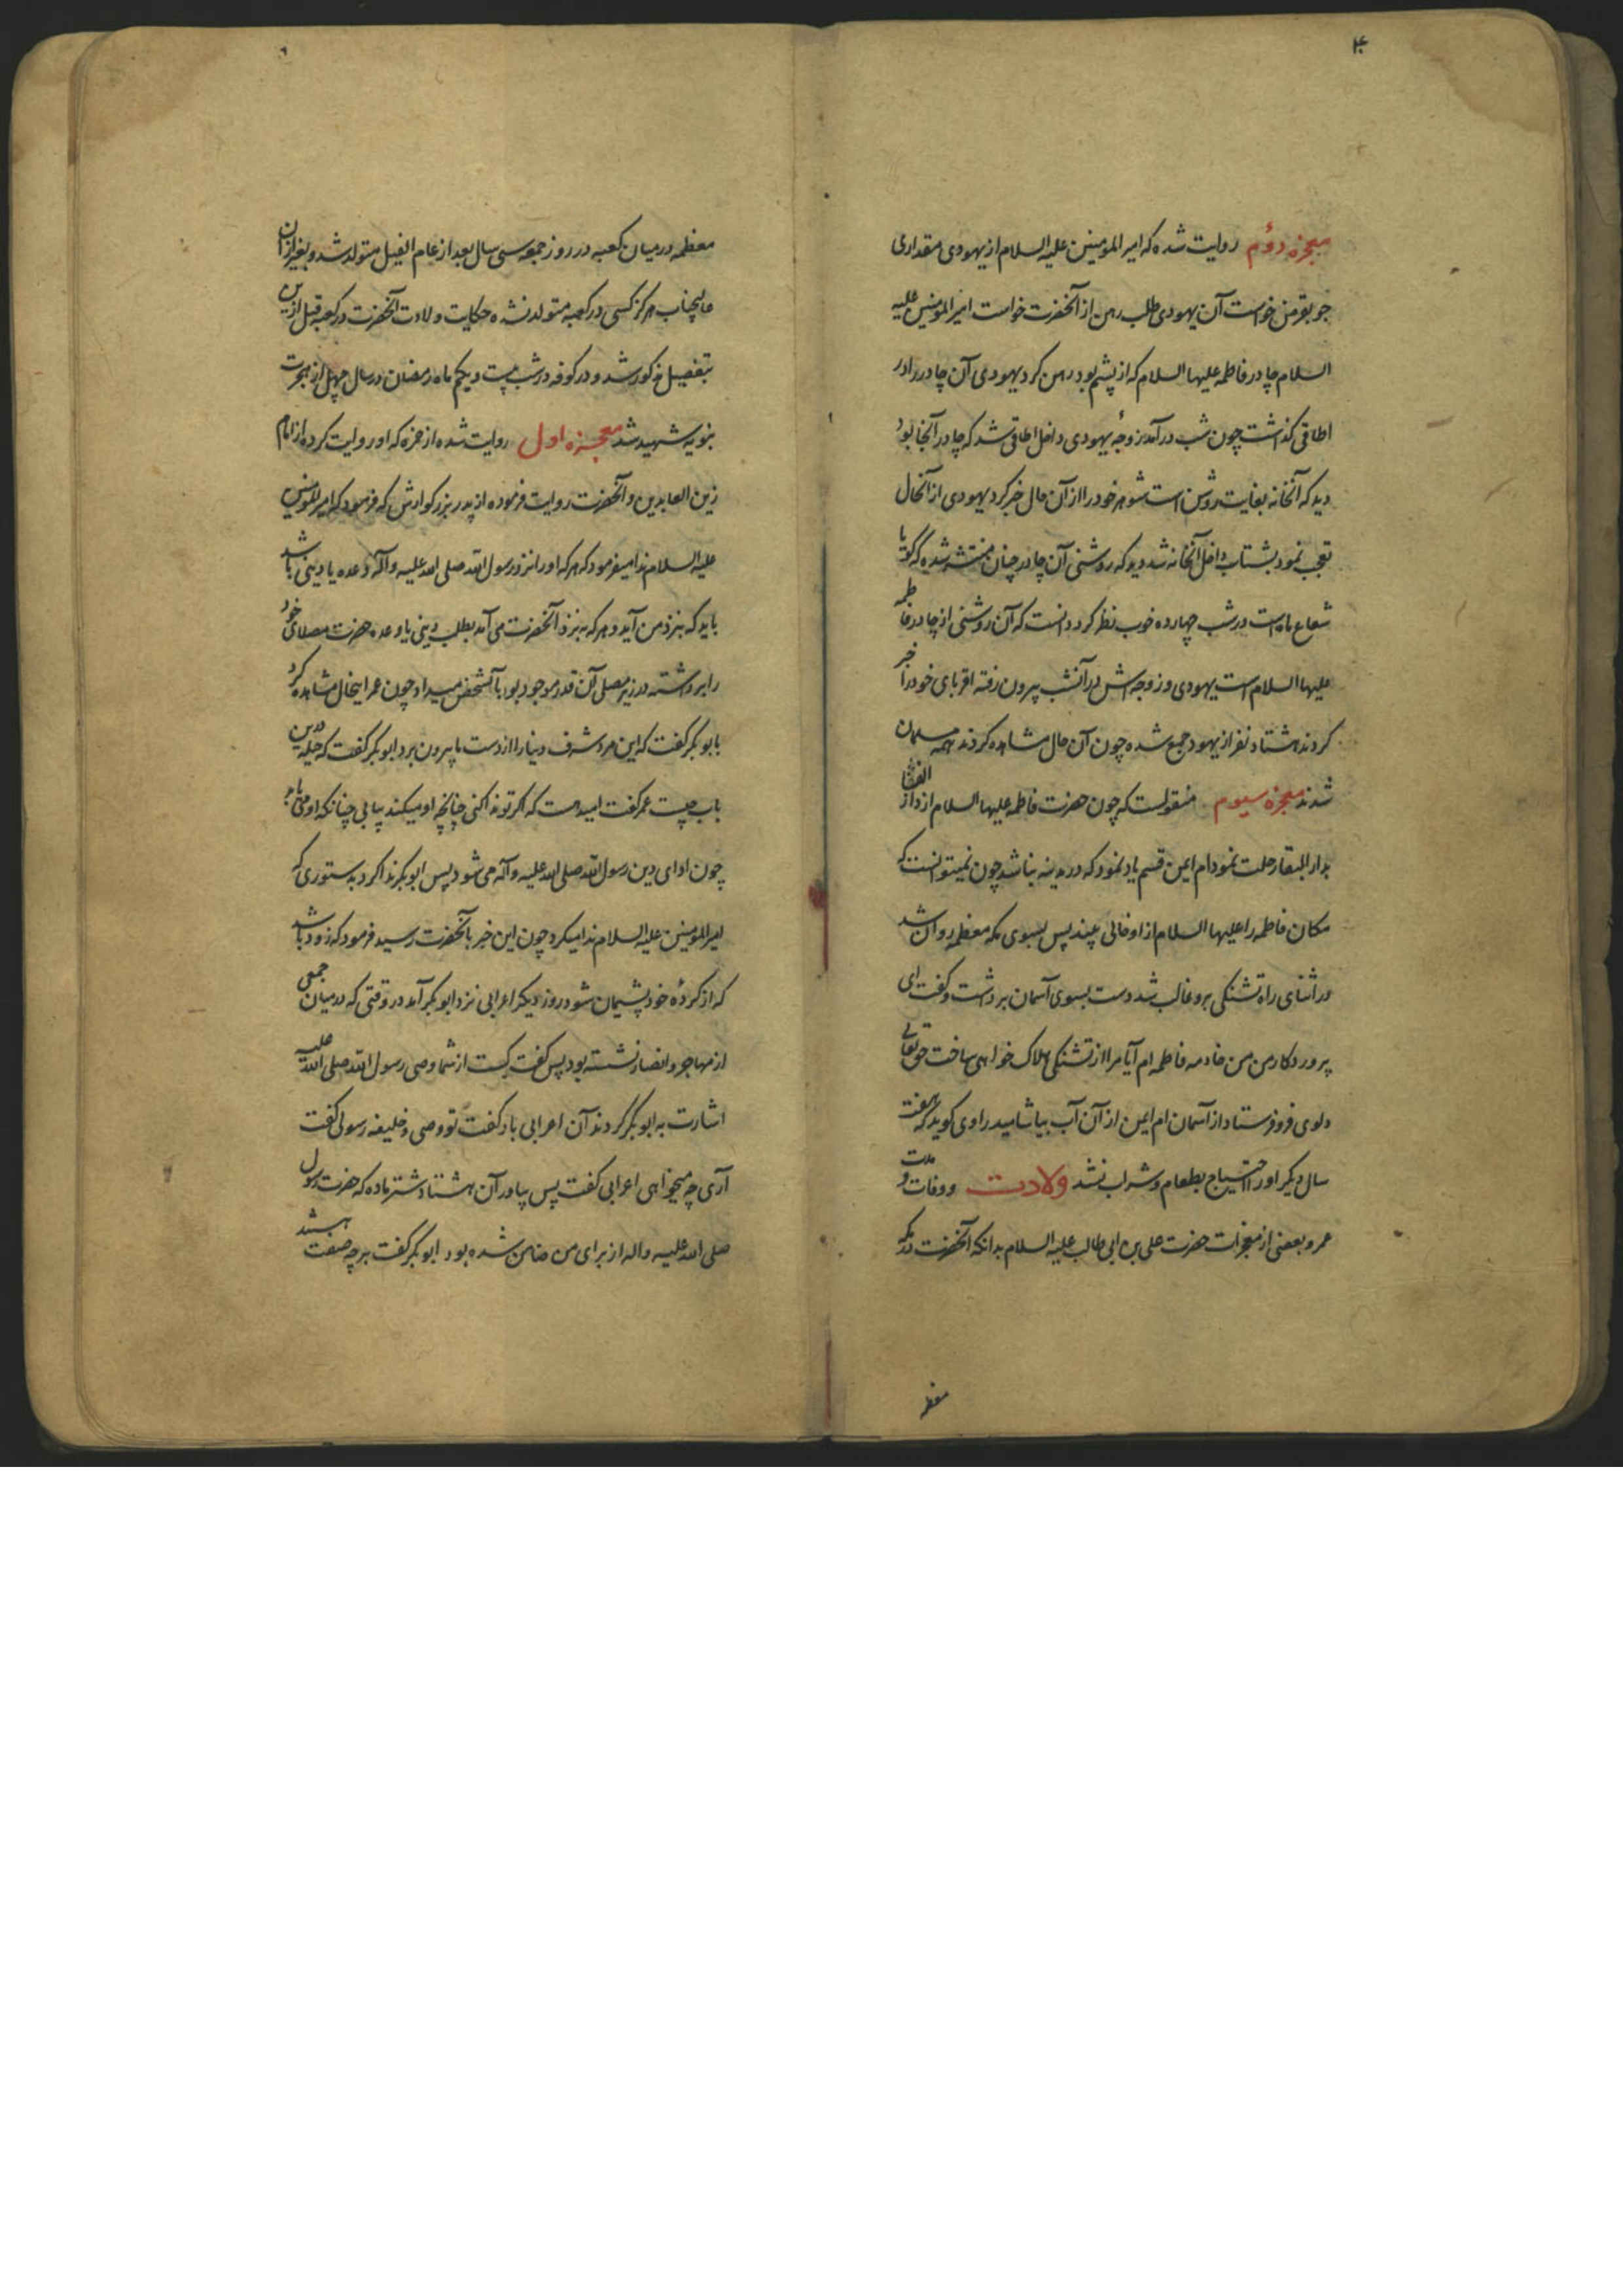 معجزه دوم روایت شده که امیر المومنین علیه السلام از یهودی مقداری
جو بقرض خواست آن یهودی طلب رهن از آنحضرت خواست امیر المومنین علیه
السلام چادر فاطمه علیها السلام که از پشم بود رهن کرد یهودی آن چادر را در
اطاقی گذاشت چون شب در آمد زوجهٔ یهودی داخل اطاقی شد که چادر آنجا بود
دید که آنخانه بغایت روشن است شوهر خود را از آن حال خبر کرد یهودی از آنحال
تعجب نمود بشتاب داخل آنخانه شد دید که روشنی آن چادر چنان منتشر شده که گویا
شعاع ماه است در شب چهارده خوب نظر کرد دانست که آن روشنی از چادر فاطمه
علیها السلام است یهودی و زوجه اش در آنشب بیرون رفته اقربای خود را خبر
کردند هشتاد نفر از یهود جمع شده چون آن حال مشاهده کردند همه مسلمان
شدند معجزه سیوم منقولست که چون حضرت فاطمه علیها السلام از دار الفنا
بدار البقا رحلت نمود ام ایمن قسم یاد نمود که در مدینه نباشد چون نمیتوانست که
مکان فاطمه را علیها السلام از او خالی بیند پس بسوی مکه معظمه روان شد
در اثنای راه تشنگی برو غالب شد دست بسوی آسمان برداشت و گفت ای
پروردکار من من خادمه فاطمه ام آیا مرا از تشنگی هلاک خواهی ساخت حق تعالی
دلوی فرو فرستاد از آسمان ام ایمن از آن آب بیاشامید راوی کوید که هفت
سال دیگر او را احتیاج بطعام و شراب نشد ولادت و وفات و مدت
عمر و بعضی از معجزات حضرت علی بن ابی طالب علیه السلام بدانکه آنحضرت در مکه
معظمه
معظمه در میان کعبه در روز جمعه سی سال بعد از عام الفیل متولد شد و بغیر از آن
عالیجناب هرگز کسی در کعبه متولد نشده حکایت ولادت آنحضرت در کعبه قبل ازین
بتفصیل مذکور شد و در کوفه در شب بیست و یکم ماه رمضان در سال چهل از هجرت
نبویه شهید شد معجزه اول روایت شده از حمزه که او روایت کرده از امام
زین العابدین و آنحضرت روایت فرموده از پدر بزرگوارش که فرمود که امیر المومنین
علیه السلام ندا میفرمود که هر که او را نزد رسول الله صلی الله علیه و آله وعده یا دینی باشد
باید که بنزد من آید و هر که به نزد آنحضرت می آمد بطلب دینی یا وعده حضرت مصلای خود
را برداشته در زیر مصلی آن قدر موجود بود بآنشخص میداد چون عمر اینحال مشاهده کرد
بابوبکر گفت که این مرد شرف دنیا را از دست ما بیرون برد ابوبکر گفت که حیله درین
باب چیست عمر گفت امیدست که اگر تو ندا کنی چنانچه او میکند بیابی چنانکه او می یابد
چون ادای دین رسول الله صلی الله علیه و آله می شود پس ابوبکر ندا کرد بدستوری که
امیر المومنین علیه السلام ندا میکرد چون این خبر بآنحضرت رسید فرمود که زود باشد
که از کردهٔ خود پشیمان شود روز دیگر اعرابی نزد ابوبکر آمد در وقتی که در میان جمعی
از مهاجر و انصار نشسته بود پس گفت کیست از شما وصی رسول الله صلی الله علیه
اشارت به ابوبکر کردند آن اعرابی باو گفت تو وصی و خلیفه رسولی گفت
آری چه میخواهی اعرابی گفت پس بیاور آن هشتاد شتر ماده که حضرت رسول
صلی الله علیه و اله از برای من ضامن شده بود ابوبکر گفت بر چه صفت